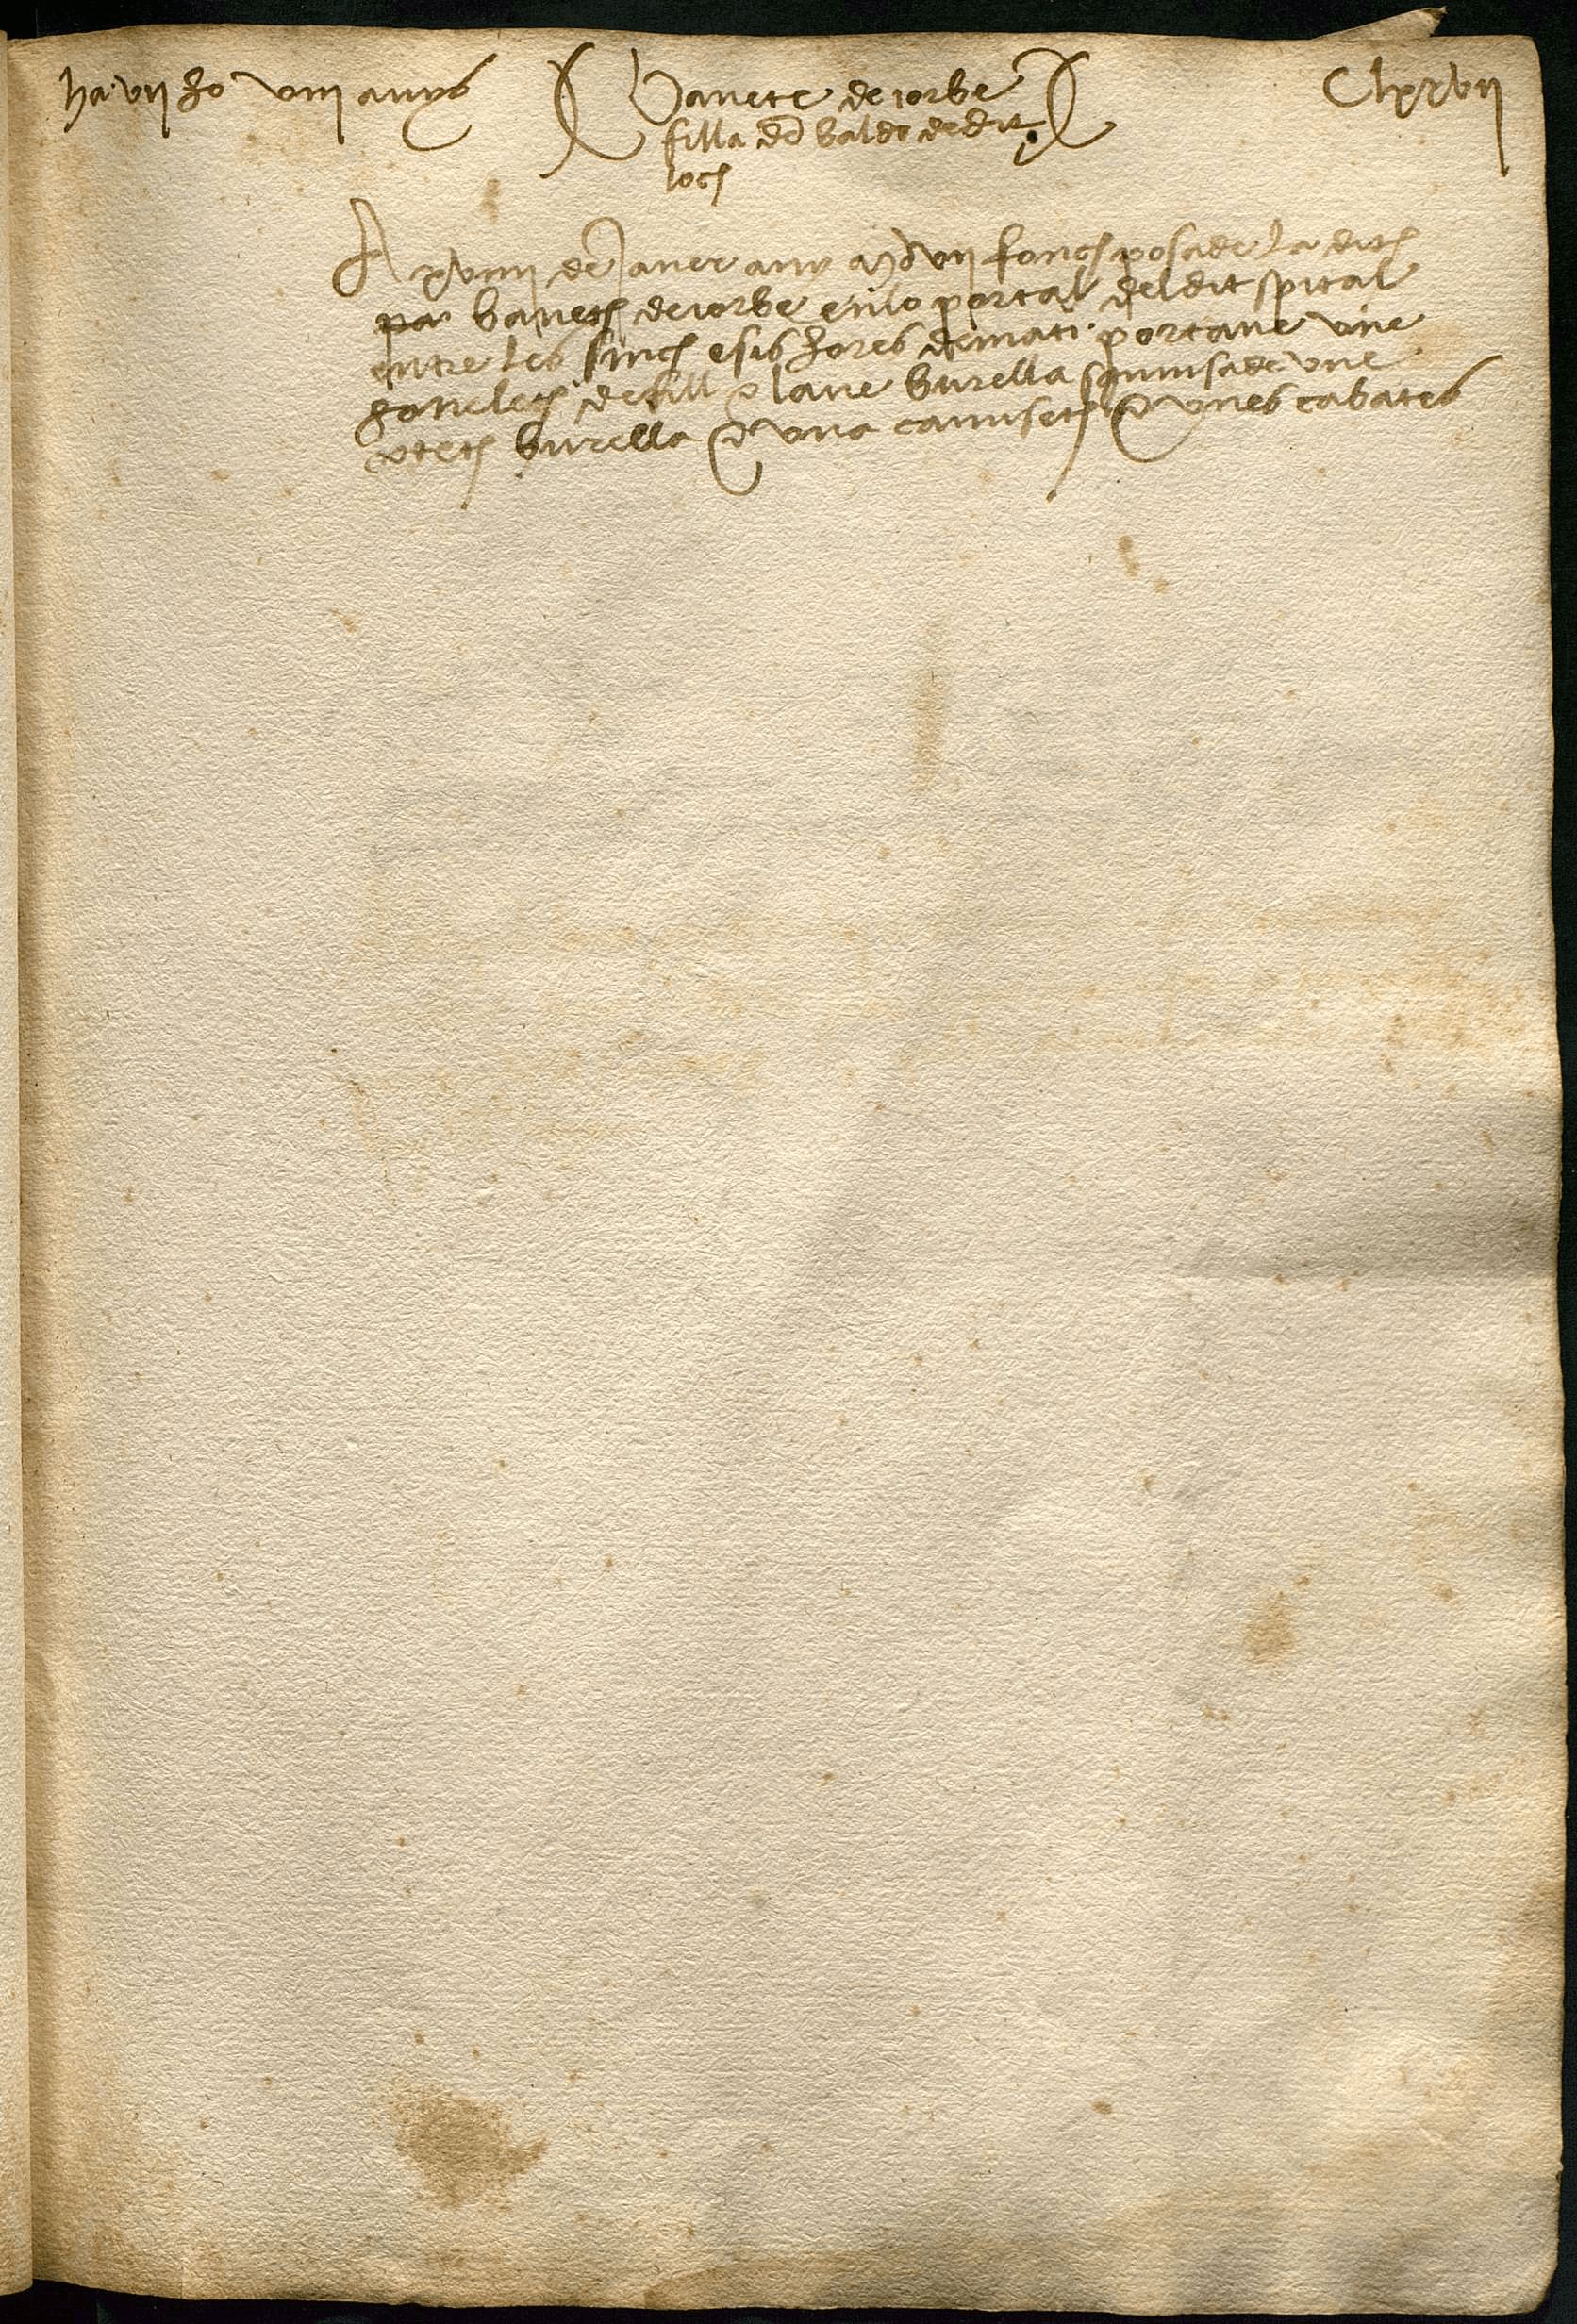 ha vii ho viii anys
Baneta de iorba
filla de balde de dit
loch
Clxxvii
A xviiii de Janer any MDvii fonch posada la dita
baneta de iorba en lo portal del dit spital
entre les sinch e sis hores de mati portave une
goneleta de fill y lane burella e une
burella e una camiseta e unes sabates